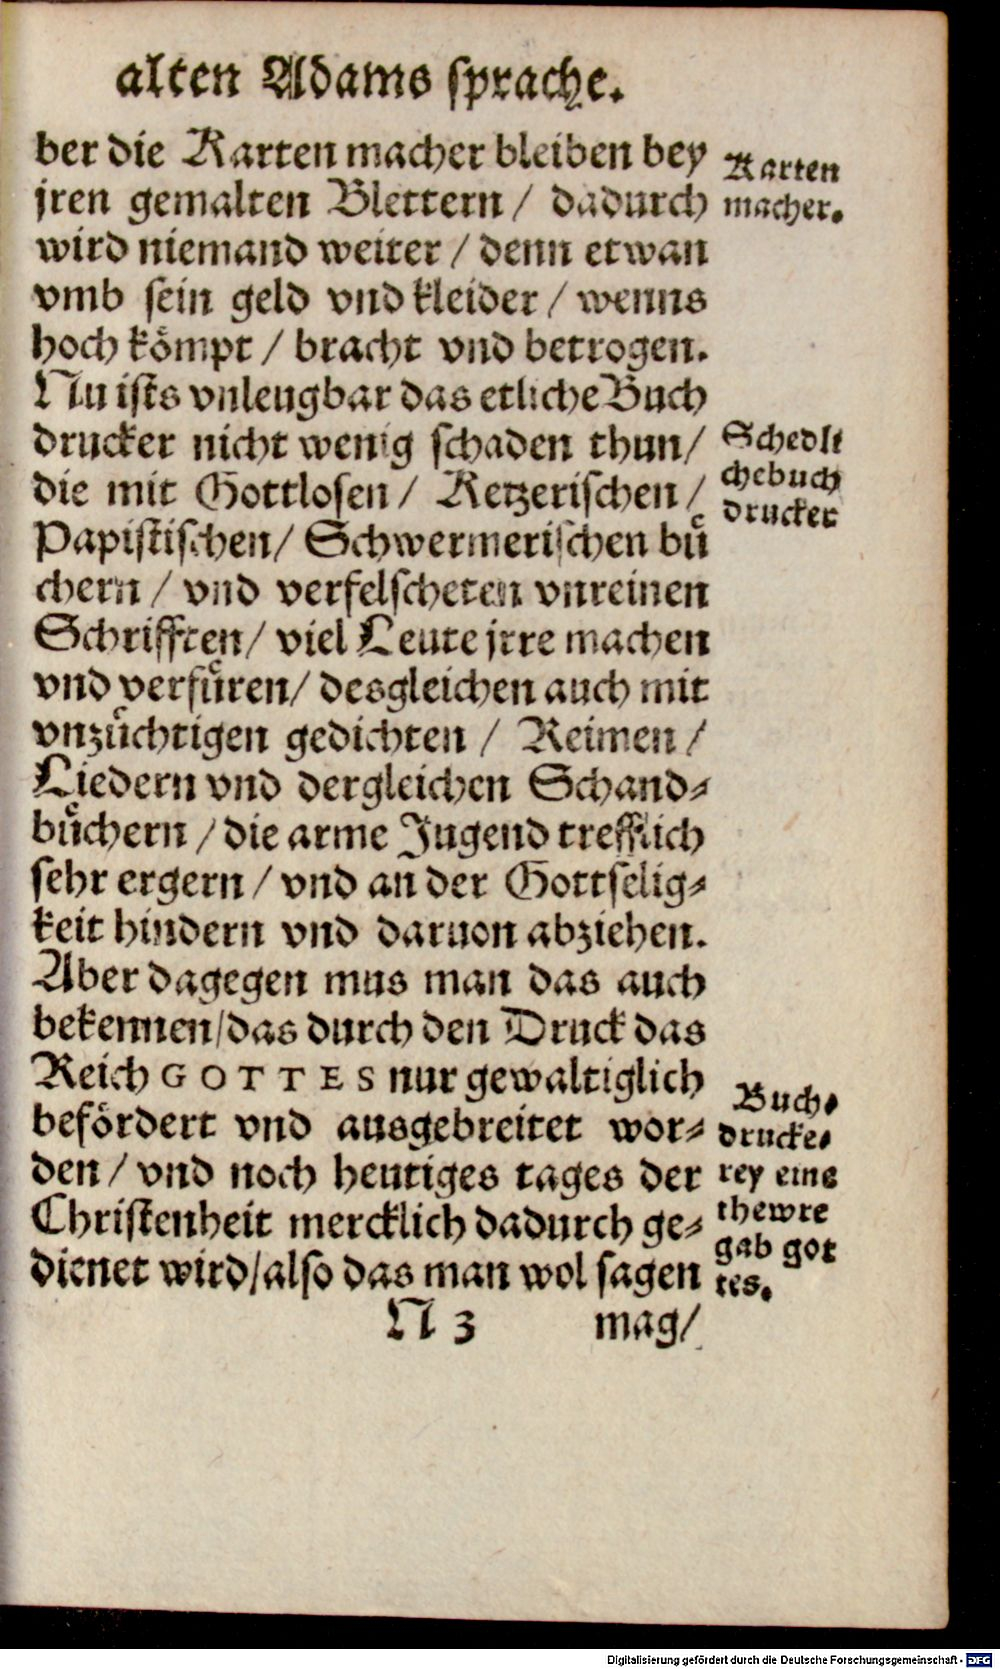 alten Adams sprache.
ber die Karten macher bleiben bey
jren gemalten Blettern / dadurch
wird niemand weiter / denn etwan
vmb sein geld vnd kleider / wenns
hoch kömpt / bracht vnd betrogen.
Nu ists vnleugbar das etliche Buch
drucker nicht wenig schaden thun/
die mit Gottlosen / Ketzerischen /
Papistischen/ Schwermerischen buͤ
chern / vnd verfelscheten vnreinen
Schrifften/ viel Leute jrre machen
vnd verfuͤren/ desgleichen auch mit
vnzuͤchtigen gedichten / Reimen /
Liedern vnd dergleichen Schand⸗
buͤchern / die arme Jugend trefflich
sehr ergern / vnd an der Gottselig⸗
keit hindern vnd daruon abziehen.
Aber dagegen mus man das auch
bekennen/das durch den Druck das
Reich GOTTES nur gewaltiglich
befördert vnd ausgebreitet wor⸗
den / vnd noch heutiges tages der
Christenheit mercklich dadurch ge⸗
dienet wird/also das man wol sagen
N 3 mag/
Karten
macher.
Schedli
chebuch
drucker
Buch⸗
drucke⸗
rey eine
thewre
gab got
tes.
Digitalisierung gefördert durch die Deutsche Forschungsgemeinschaft - DFG